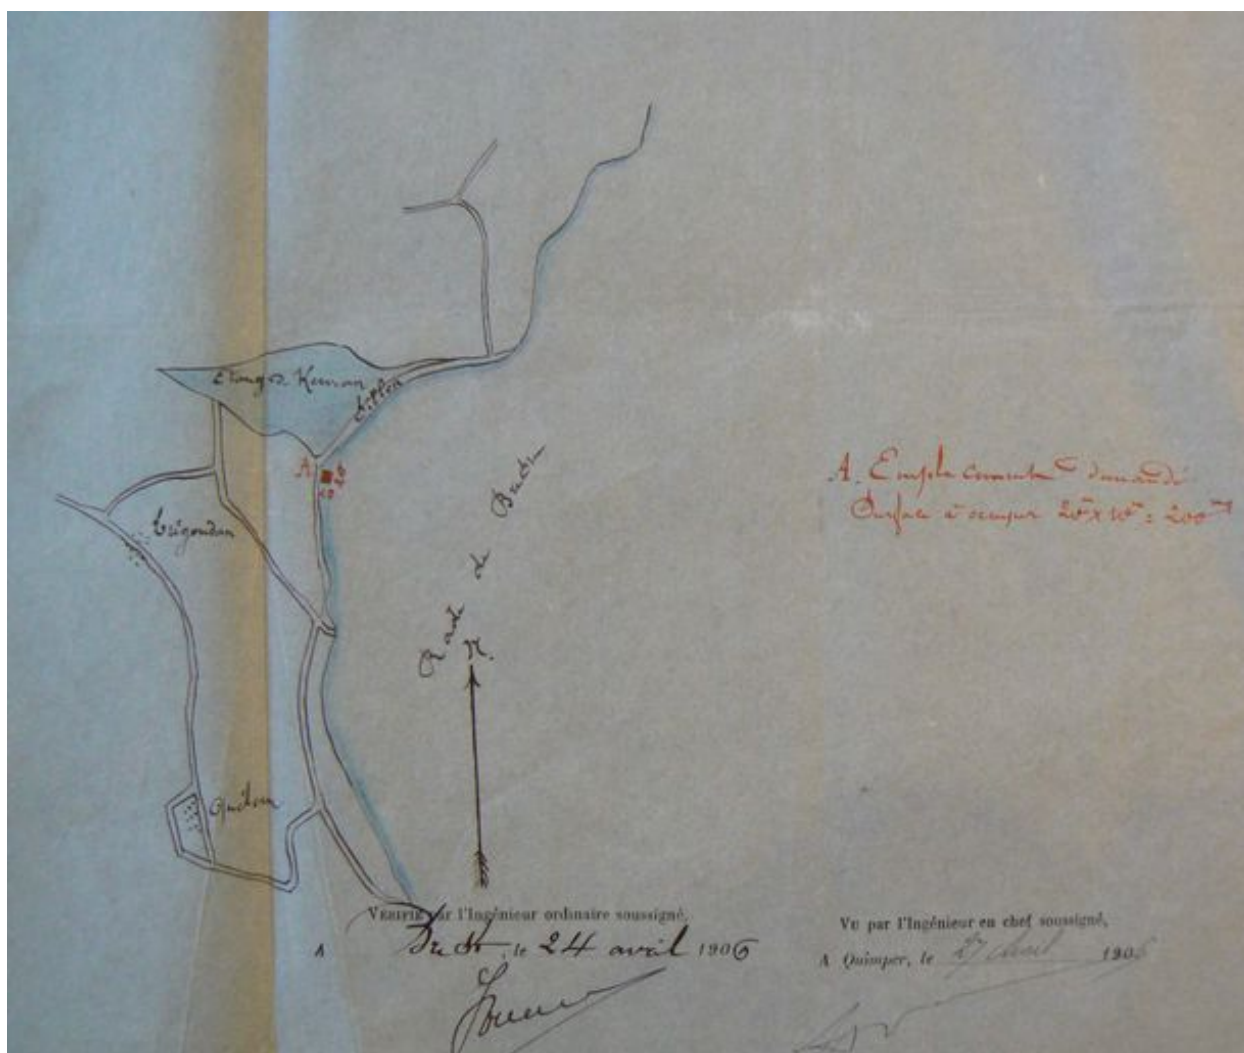 Etang de Kervian
Le Fret
A
10
20
Trégoudan
Rade de Brest
N.
Quélern
A. Emplacement demandé
Surface à occuper 20m x 10m = 200mq
VÉRIFIÉ par l'Ingénieur ordinaire soussigné,
A Brest, le 24 avril 1906
VU par l'Ingénieur en chef soussigné,
A Quimper, le 27 Avril 1906